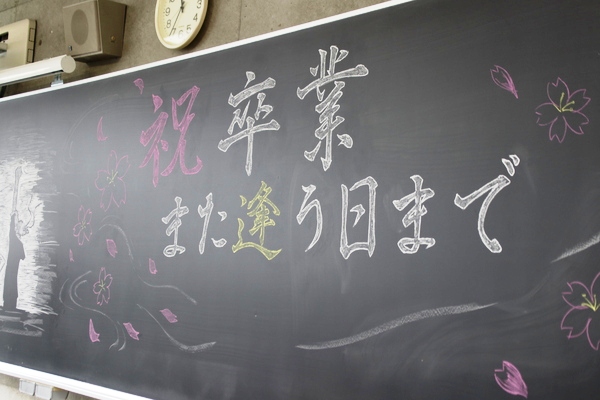 祝卒業
また逢う日まで